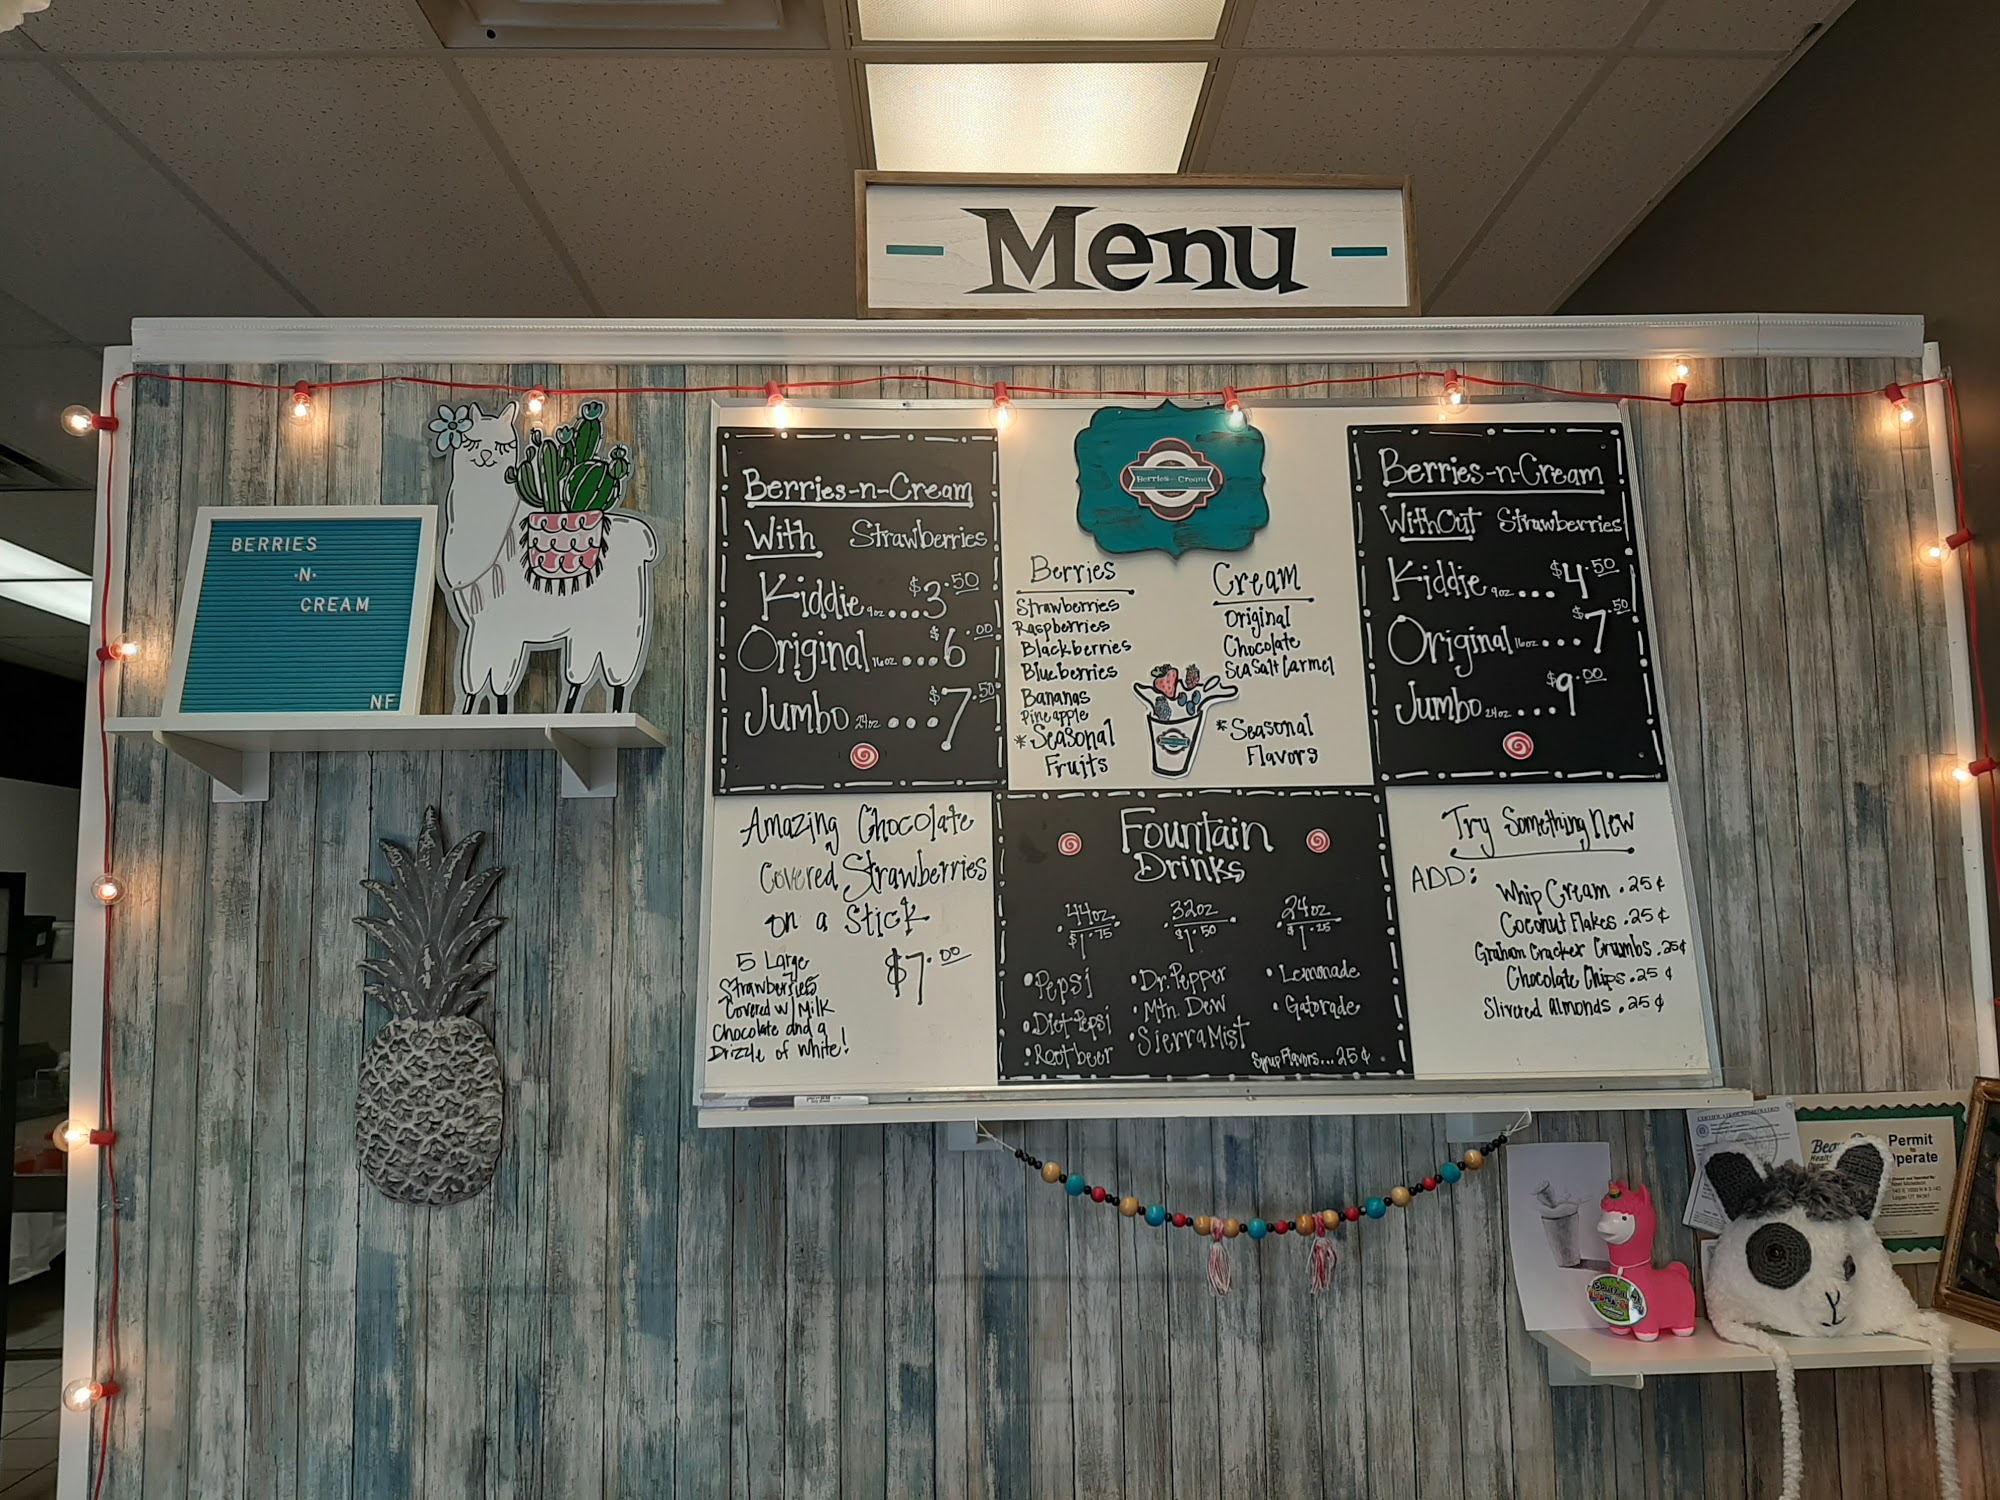 Menu
BERRIES
·N·
CREAM
NF
Berries-n-Cream
With Strawberries
Kiddie 9oz...$3.50
Original 16oz...$6.00
Jumbo 24oz...$7.50
Berries-n-Cream
Berries
Strawberries
Raspberries
Blackberries
Blueberries
Bananas
Pineapple
*Seasonal
Fruits
Cream
Original
Chocolate
Sea Salt Carmel
*Seasonal
Flavors
Berries-n-Cream
WithOut Strawberries
Kiddie 9oz...$4.50
Original 16oz...$7.50
Jumbo 24oz...$9.00
Amazing Chocolate
Covered Strawberries
on a Stick
$7.00
5 Large
Strawberries
Covered w/ Milk
Chocolate and a
Drizzle of white!
Fountain
Drinks
44oz
$1.75
32oz
$1.50
24oz
$1.25
•Pepsi
•Diet Pepsi
•Rootbeer
•Dr. Pepper
•Mtn. Dew
•Sierra Mist
•Lemonade
•Gatorade
Syrup Flavors...25¢
Try Something New
ADD:
Whip Cream .25¢
Coconut Flakes .25¢
Graham Cracker Crumbs .25¢
Chocolate Chips .25¢
Slivered Almonds .25¢
Permit
to
Operate